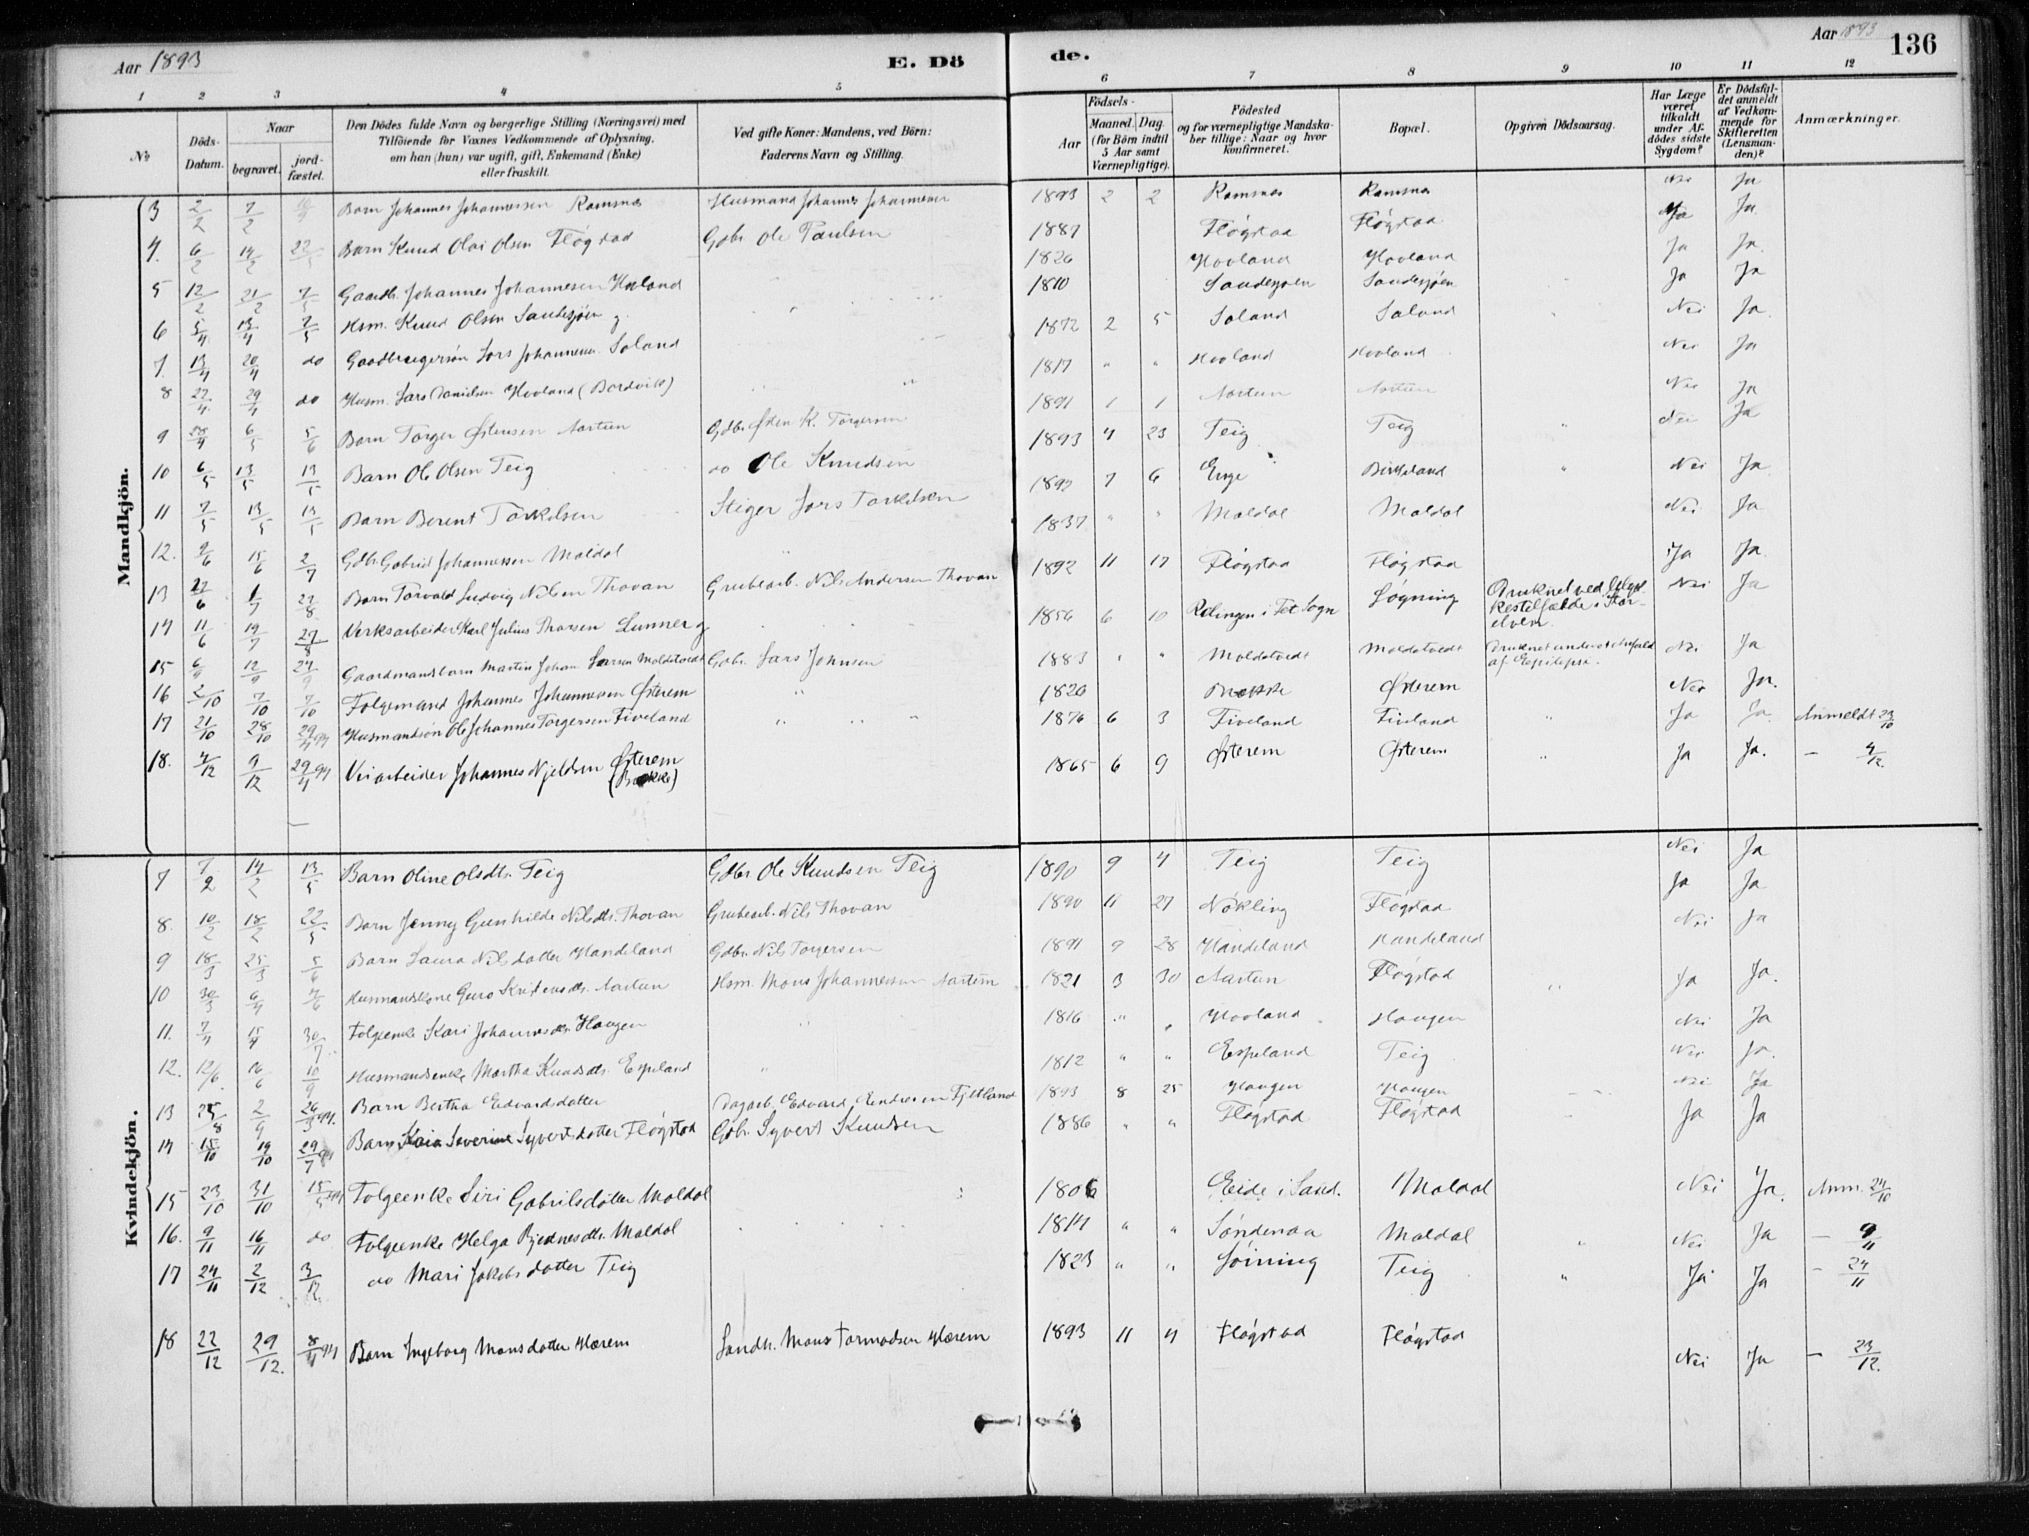 Aar 1893
E. Dö
de.
Aar 1893
136
1 2 3 4 5 6 7 8 9 10 11 12
No
Döds-Datum.
Naar
begravet.
jord-fæstet.
Den Dödes fulde Navn og borgerlige Stilling (Næringsvei) med
Tilföiende for Voxnes Vedkommende af Oplysning,
om han (hun) var ugift, gift, Enkemand (Enke)
eller fraskilt.
Ved gifte Koner: Mandens, ved Börn:
Faderens Navn og Stilling.
Födsels-
Aar
Maaned. Dag
(for Börn indtil
5 Aar samt
Værnepligtige).
Födested
og for værnepligtige Mandska-
ber tillige: Naar og hvor
konfirmeret.
Bopæl.
Opgiven Dödsaarsag.
Har Læge
været
tilkaldt
under Af-
dödes sidste
Sygdom?
Er Dödsfal-
det anmeldt
af Vedkom-
mende for
Skifteretten
(Lensman-
den)?
Anmærkninger.
Mandkjön.
3 2/2 7/2 Barn Johannes Johannessen Ramsnes Husmand Johannes Johannessen 1893 2 2 Ramsnes Ramsnes Nei Ja
4. 6/2 14/2 22/5 Barn Knud Olai Olsen Fløgstad Gdbr. Ole Paulsen 1887 Fløgstad Fløgstad Ja Ja
5 12/2 21/2 7/5 Gaardb. Johannes Johannesen Hovland 1826 Hovland Hovland Ja Ja.
6 5/4 13/4 7/5 Hsm. Knud Olsen Sandesjøen g. 1810 Sandesjøen Sandesjøen Ja Ja
7. 13/4 20/4 do Gaardbrugersøn Lars Johannesen Soland 1872 2 5 Soland Soland Nei Ja.
8 22/4 29/4 do Husm. Lars Danielsen Hovland (Bordvik) 1817 " " Hovland Hovland Nei Ja
9 28/4 6/5 5/6 Barn Torger Østensen Aartun Gdbr. Østen K. Torgersen 1891 1 1 Aartun Aartun Nei Ja
10 6/5 13/5 13/5 Barn Ole Olsen Teig do Ole Knudsen 1893 4 23 Teig Teig Nei Ja
11 7/5 13/5 13/5 Barn Berent Torkelsen Stiger Lars Torkelsen 1893 7 6 Enge Birkeland Nei Ja
12. 9/6 15/6 2/7 Gdbr. Gabriel Johannessen Moldal 1837 " " Moldal Moldal Nei Ja
13 22/6 1/7 27/8 Barn Torvald Ludvig Nilsen Thovan Grubearb. Nils Andersen Thovan 1892 11 17 Fløgstad Fløgstad Ja Ja.
14 11/6 19/7 27/8 Verksarbeider Karl Julius Thorsen Lunner g 1856 6 10 Rølingen i Fet Sogn Løgning Druknet ved Ulyk-
kestilfælde i Stor-
elven. Nei Ja
15 6/9 12/9 24/9 Gaardmandsbarn Martin Johan Larsen Moldatvedt Gdbr. Lars Johnsen 1883 " " Moldatvedt Moldatvedt Druknet under et Anfald
af Epilepsi. Nei Ja
16 2/10 7/10 7/10 Folgemand Johannes Johannessen Østerem 1820 Bakke Østerem Nei Ja.
17 21/10 28/10 29/4 94 Husmandssøn Ole Johannes Torgersen Fiveland 1876 6 3 Fiveland Fiveland Ja Ja. Anmeldt 23/10
18. 4/12 9/12 29/4 94 Veiarbeider Johannes Njeldsen Østerem
(Bakke) 1865 6 9 Østerem Østerem Ja Ja. — 4/12.
Kvindekjön.
7 7/2 14/2 13/5 Barn Oline Olsdtr. Teig Gdbr. Ole Knudsen Teig 1890 9 4 Teig Teig Nei Ja
8. 10/2 18/2 22/5 Barn Jenny Gunhilde Nilsdtr. Thovan Grubearb. Nils Thovan 1890 11 27 Nøkling Fløgstad Ja Ja
9 18/3 25/3 5/6 Barn Laura Nilsdatter Handeland Gdbr. Nils Torgersen 1891 9 28 Handeland Handeland Nei Ja
10 30/3 6/4 4/6 Husmandskone Guro Aartun Hsm. Mons Johannessen Aartun 1821 3 30 Aartun Fløgstad Ja Ja.
11. 7/4 15/4 30/7 Folgeenke Kari Johannesdtr. Haugen 1816 " " Hovland Haugen Nei Ja
12. 12/6 16/6 10/9 Husmandsenke Martha Knudsdtr. Espeland 1812 " " Espeland Teig Nei Ja.
13 25/8 2/9 94. Barn Bertha Edvardsdatter Dagarb. Edvard Endresen Fjetland 1893 8 25 Haugen Haugen Nei Ja
14 15/10 19/10 29/7 94 Barn Kaia Severine Syvertsdatter Fløgstad Gdbr. Syvert Knudsen 1886 " " Fløgstad Fløgstad Ja Ja
15 23/10 31/10 15/5 94 Folgeenke Siri Gabrielsdatter Moldal 1806 Eide i Sand. Moldal Nei Ja. Anm. 24/10
16. 9/11 16/11 do Folgeenke Helga Bjednesdtr. Moldal 1814 " " Søndenaa Moldal Nei Ja — 9/11
17 24/11 2/12 3/12 do Mari Jakobsdatter Teig 1823 " " Løining Teig Ja Ja — 24/11
18 22/12 29/12. 8/4 94 Barn Ingeborg Monsdatter Hærem Landh. Mons Tormodsen Hærem 1893 11 4 Fløgstad Fløgstad Nei Ja — 23/12.